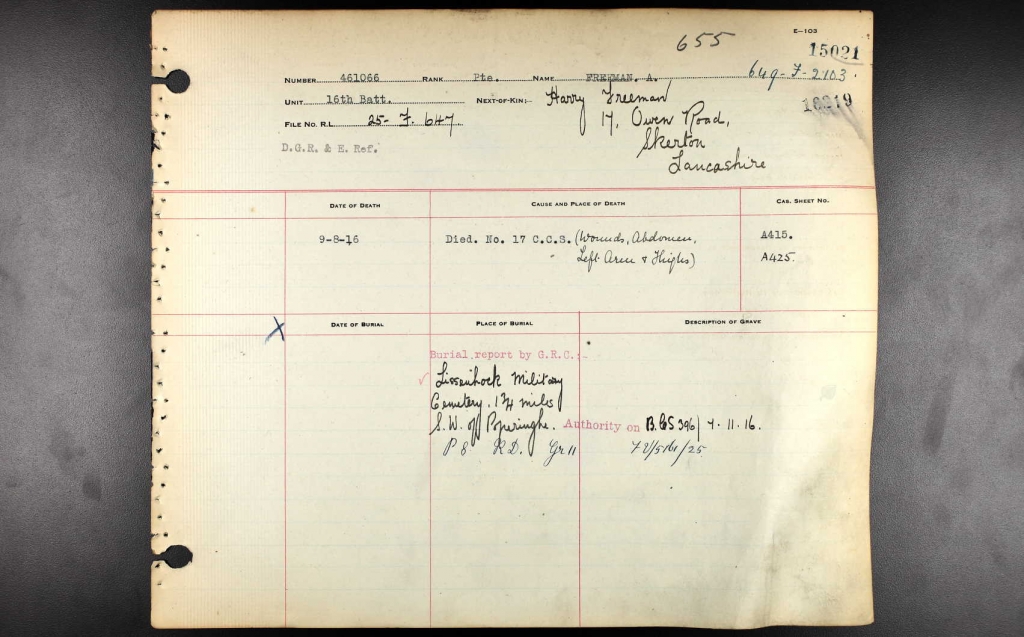 655
E—103
15021
649-F-2103.
NUMBER 461066 RANK Pte. NAME FREEMAN. A.
UNIT 16th Batt. NEXT-OF-KIN:- Harry Freeman
FILE NO. R.L. 25- F. 647. 17, Owen Road,
Skerton
D.G.R. & E. Ref. Lancashire
DATE OF DEATH CAUSE AND PLACE OF DEATH CAS. SHEET NO.
9-8-16 Died. No. 17 C.C.S. (Wounds, Abdomen, A415.
Left Arm & Thighs) A425.
X DATE OF BURIAL PLACE OF BURIAL DESCRIPTION OF GRAVE
Burial report by G.R.C:-
Lissenhock Military
Cemetery. 1¾ miles
S.W. of Poperinghe. Authority on 7.11.16.
P 8 R D. Gr 11